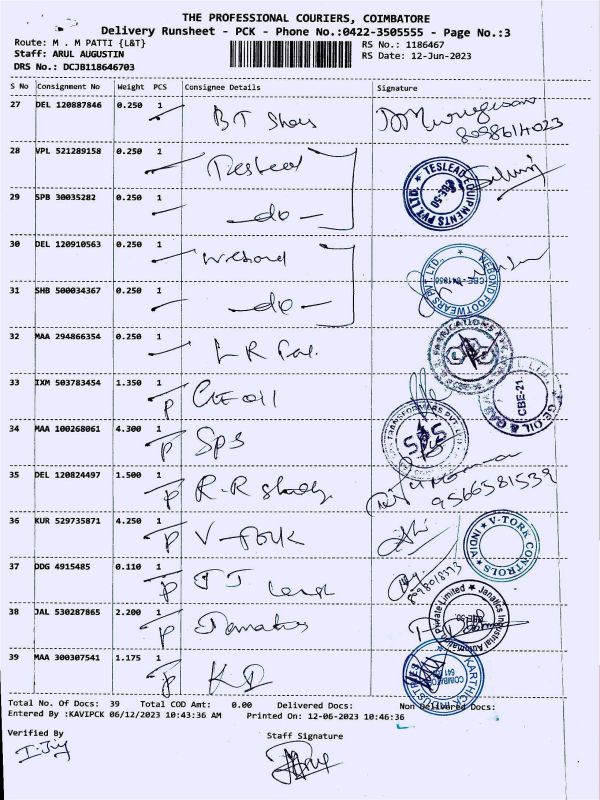 THE PROFESSIONAL COURIERS, COIMBATORE
Delivery Runsheet - PCK - Phone No.:0422-3505555 - Page No.:3
Route: M . M PATTI {L&T} RS No.: 1186467
Staff: ARUL AUGUSTIN RS Date: 12-Jun-2023
DRS No.: DCJB118646703
S No Consignment No Weight PCS Consignee Details Signature
27 DEL 120887846 0.250 1 BT
8098614023
28 VPL 521289158 0.250 1 Teslead TESLEAD EQUIPMENTS PVT. LTD. CBE-50
29 SPB 30035282 0.250 1 -do-
30 DEL 120910563 0.250 1 Webond WEBOND FOOTWEARS PVT. LTD.,
31 SHB 500034367 0.250 1 -do-
32 MAA 294866354 0.250 1 L R Fab. FABRICATIONS
33 IXM 503783454 1.350 1 P GE oil GE OIL & GAS CBE-21.
34 MAA 100268061 4.300 1 P SPS TRANSFORMERS PVT LTD SPS
35 DEL 120824497 1.500 1 P R.R
9566581539
36 KUR 529735871 4.250 1 P V-tork V-TORK CONTROLS INDIA
37 DDG 4915485 0.110 1 P JJ
38 JAL 530287865 2.200 1 P Janatics Janatics Industrial Automation Private Limited
39 MAA 300307541 1.175 1 P K I KARTHICA INDUSTRIES COIMBATORE
Total No. Of Docs: 39 Total COD Amt: 0.00 Delivered Docs: Non Delivered Docs:
Entered By :KAVIPCK 06/12/2023 10:43:36 AM Printed On: 12-06-2023 10:46:36
Verified By Staff Signature